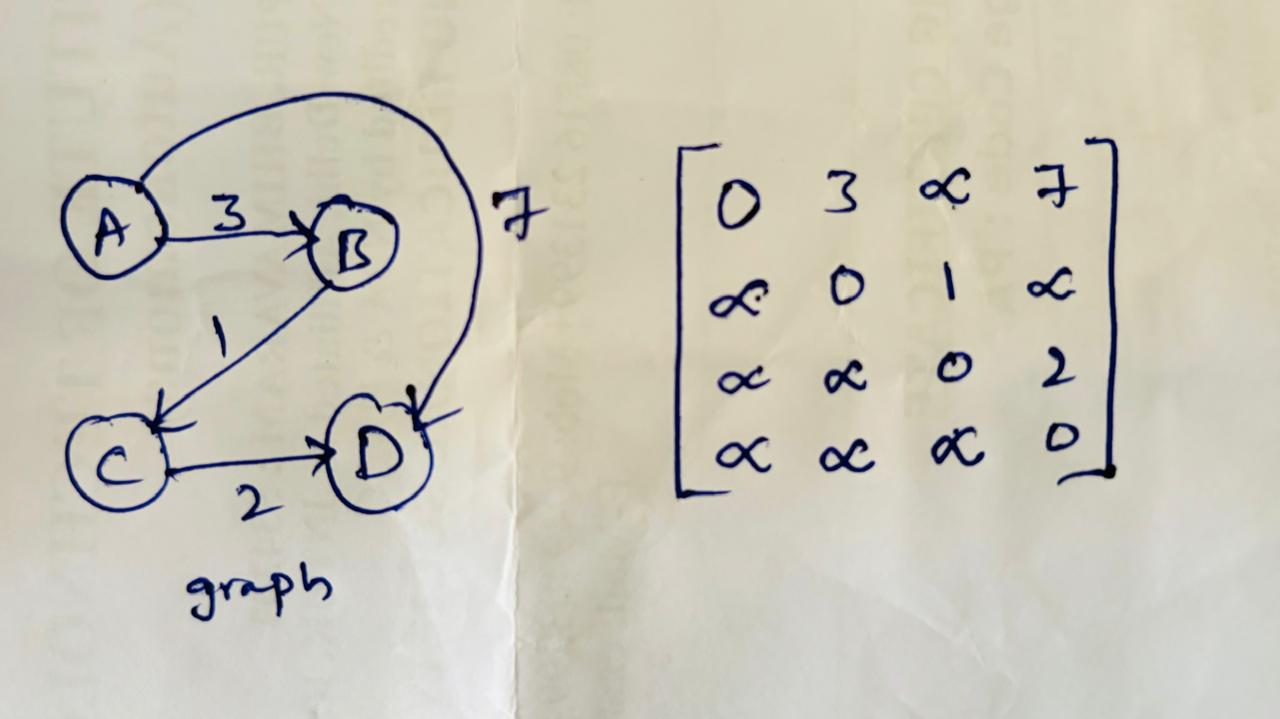 7
A 3 B
1
C D
2
graph
0 3 ∝ 7
∝ 0 1 ∝
∝ ∝ 0 2
∝ ∝ ∝ 0